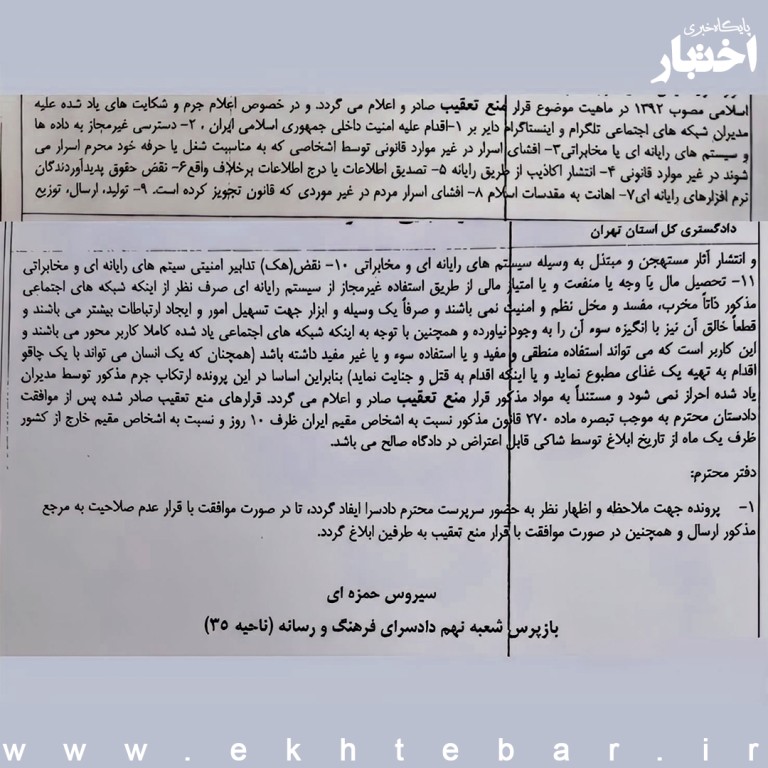 پایگاه خبری
اختبار
اسلامی مصوب ۱۳۹۲ در ماهیت موضوع قرار منع تعقیب صادر و اعلام می گردد. و در خصوص اعلام جرم و شکایت های یاد شده علیه
مدیران شبکه های اجتماعی تلگرام و اینستاگرام دایر بر ۱-اقدام علیه امنیت داخلی جمهوری اسلامی ایران ، ۲- دسترسی غیرمجاز به داده ها
و سیستم های رایانه ای یا مخابراتی۳- افشای اسرار در غیر موارد قانونی توسط اشخاصی که به مناسبت شغل یا حرفه خود محرم اسرار می
شوند در غیر موارد قانونی ۴- انتشار اکاذیب از طریق رایانه ۵- تصدیق اطلاعات یا درج اطلاعات برخلاف واقع۶- نقض حقوق پدیدآوردندگان
نرم افزارهای رایانه ای۷- اهانت به مقدسات اسلام ۸- افشای اسرار مردم در غیر موردی که قانون تجویز کرده است. ۹- تولید، ارسال، توزیع
دادگستری کل استان تهران
و انتشار آثار مستهجن و مبتذل به وسیله سیستم های رایانه ای و مخابراتی ۱۰- نقض(هک) تدابیر امنیتی سیتم های رایانه ای و مخابراتی
۱۱- تحصیل مال یا وجه یا منفعت و یا امتیاز مالی از طریق استفاده غیرمجاز از سیستم رایانه ای صرف نظر از اینکه شبکه های اجتماعی
مذکور ذاتاً مخرب، مفسد و مخل نظم و امنیت نمی باشند و صرفاً یک وسیله و ابزار جهت تسهیل امور و ایجاد ارتباطات بیشتر می باشند و
قطعاً خالق آن نیز با انگیزه سوء آن را به وجود نیاورده و همچنین با توجه به اینکه شبکه های اجتماعی یاد شده کاملا کاربر محور می باشند و
این کاربر است که می تواند استفاده منطقی و مفید و یا استفاده سوء و یا غیر مفید داشته باشد (همچنان که یک انسان می تواند با یک چاقو
اقدام به تهیه یک غذای مطبوع نماید و یا اینکه اقدام به قتل و جنایت نماید) بنابراین اساسا در این پرونده ارتکاب جرم مذکور توسط مدیران
یاد شده احراز نمی شود و مستنداً به مواد مذکور قرار منع تعقیب صادر و اعلام می گردد. قرارهای منع تعقیب صادر شده پس از موافقت
دادستان محترم به موجب تبصره ماده ۲۷۰ قانون مذکور نسبت به اشخاص مقیم ایران ظرف ۱۰ روز و نسبت به اشخاص مقیم خارج از کشور
ظرف یک ماه از تاریخ ابلاغ توسط شاکی قابل اعتراض در دادگاه صالح می باشد.
دفتر محترم:
۱- پرونده جهت ملاحظه و اظهار نظر به حضور سرپرست محترم دادسرا ایفاد گردد، تا در صورت موافقت با قرار عدم صلاحیت به مرجع
مذکور ارسال و همچنین در صورت موافقت با قرار منع تعقیب به طرفین ابلاغ گردد.
سیروس حمزه ای
بازپرس شعبه نهم دادسرای فرهنگ و رسانه (ناحیه ۳۵)
www.ekhtebar.ir